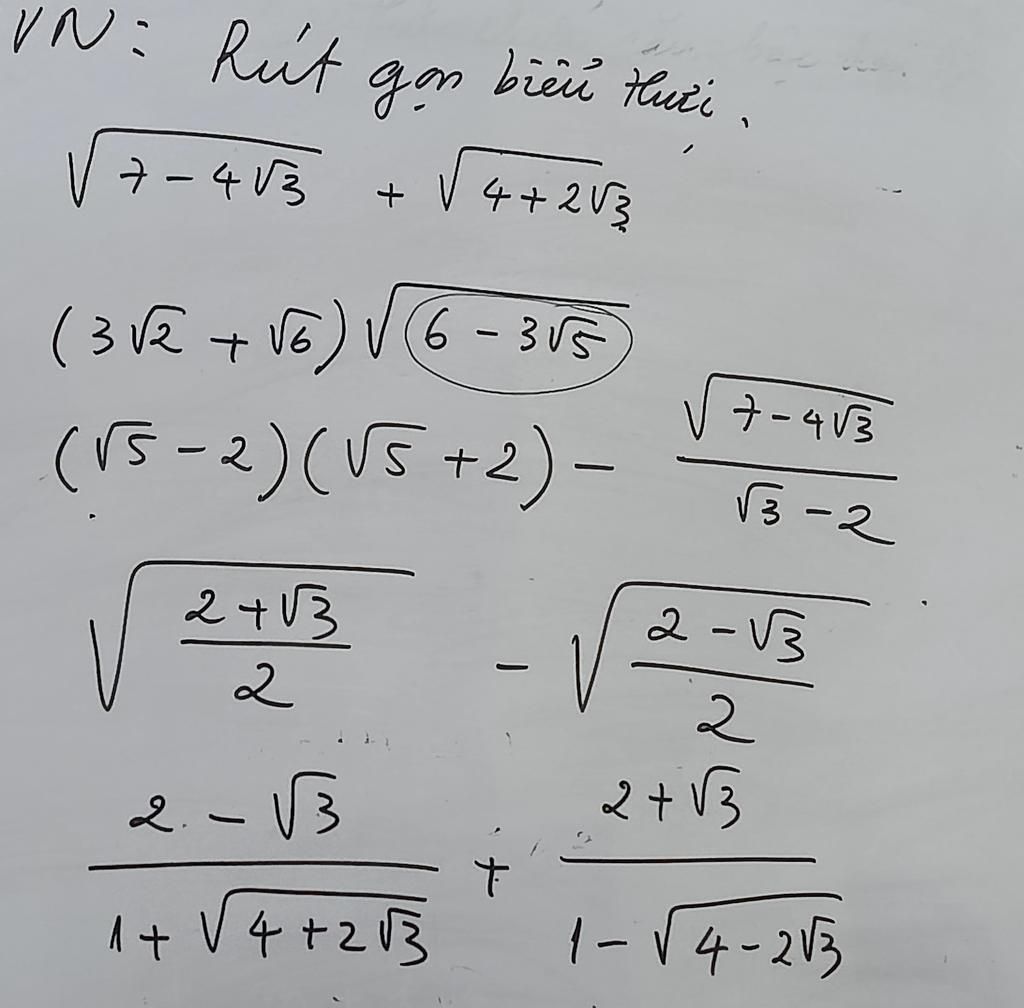 VN: Rút gọn biểu thức.
√(7 - 4√3) + √(4 + 2√3)
(3√2 + √6) √(6 - 3√5)
(√5 - 2)(√5 + 2) - √(7 - 4√3) / (√3 - 2)
√((2 + √3) / 2) - √((2 - √3) / 2)
(2 - √3) / (1 + √(4 + 2√3)) + (2 + √3) / (1 - √(4 - 2√3))